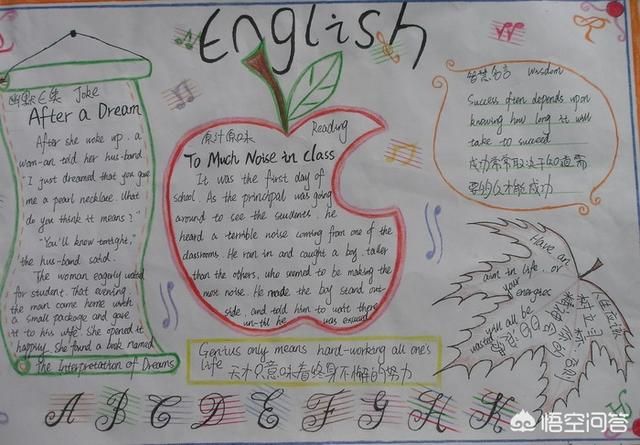 English
幽默在线 Joke
After a Dream
After she woke up, a
wom-an told her hus-band.
"I just dreamed that you gave
me a pearl necklace. What
do you think it means?"
"You'll know tonight,"
the hus-band said.
The woman eagerly waited
for student. That evening,
the man came home with
a small package and gave
it to his wife. She opened it
happily, she found a book named
The Interpretation of Dreams
原汁原味 Reading
To Much Noise in Class
It was the first day of
school. As the principal was going
around to see the students, he
heard a terrible noise coming from one of the
classrooms. He ran in and caught a boy, taller
than the others, who seemed to be making the
most noise. He made the boy stand out-
side, and told him to wait there
un-til he was excused
智慧名言 wisdom
Success often depends upon
knowing how long it will
take to succeed
成功常常取决于知道需
要多久才能成功
Have an
aim in life, or
your energies
will all be
wasted
人生应该
树立目标,否则
Genius only means hard-working all one's
life
天才只意味着终身不懈的努力
A B C D E F G H K
悟空问答